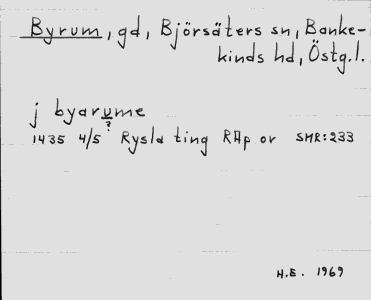 Byrum, gd, Björsäters sn, Banke-
kinds hd, Östg.l.
j byarume
?
1435 4/5 Rysla ting RAp or SMR:233
H.E. 1969